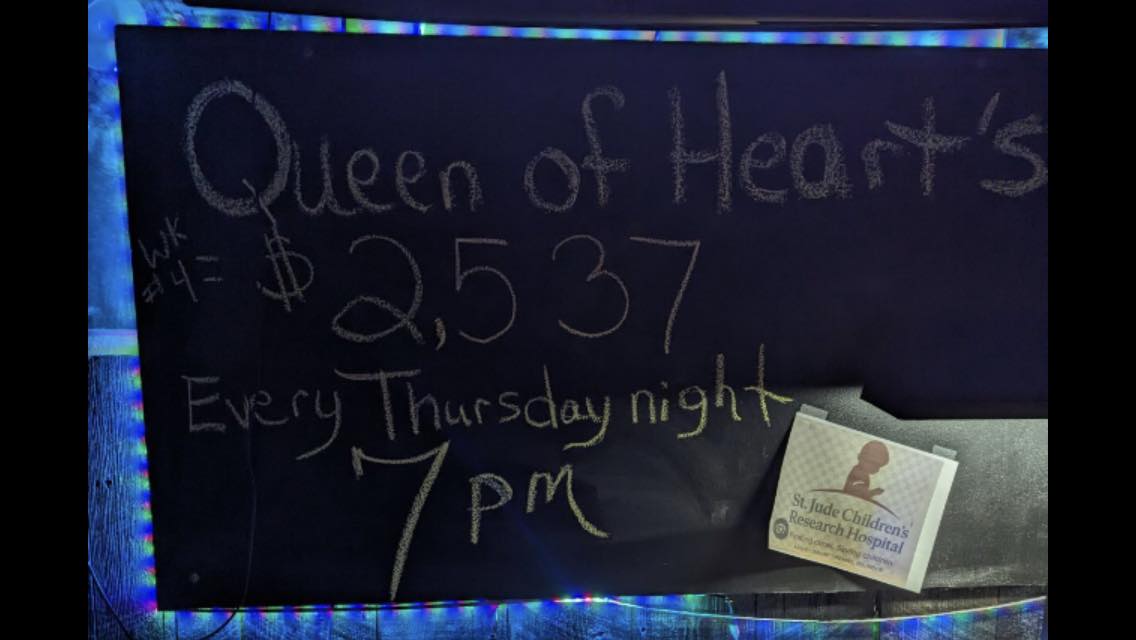 Queen of Heart's
WK
#4 = $2,537
Every Thursday night
7 pm
St. Jude Children's
Research Hospital
Finding cures. Saving children.